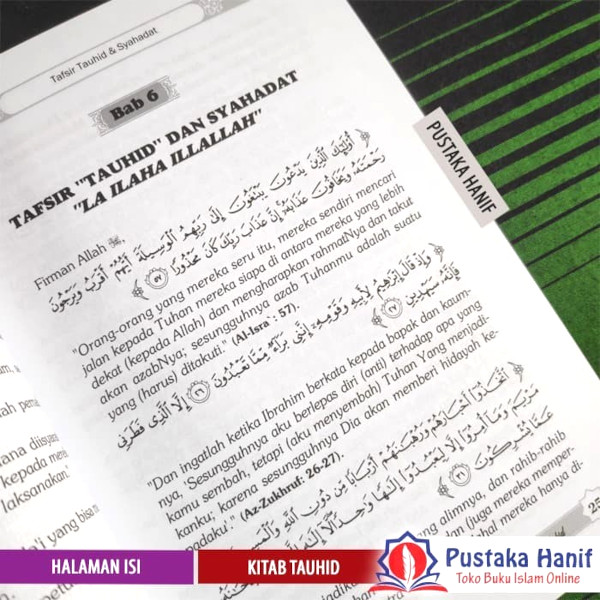 Tafsir Tauhid & Syahadat
Bab 6
TAFSIR "TAUHID" DAN SYAHADAT
"LA ILAHA ILLALLAH"
Firman Allah ﷻ,
﴿أُولَٰئِكَ الَّذِينَ يَدْعُونَ يَبْتَغُونَ إِلَىٰ رَبِّهِمُ الْوَسِيلَةَ أَيُّهُمْ أَقْرَبُ وَيَرْجُونَ
رَحْمَتَهُ وَيَخَافُونَ عَذَابَهُ ۚ إِنَّ عَذَابَ رَبِّكَ كَانَ مَحْذُورًا ۝٥٧﴾
"Orang-orang yang mereka seru itu, mereka sendiri mencari
jalan kepada Tuhan mereka siapa di antara mereka yang lebih
dekat (kepada Allah) dan mengharapkan rahmatNya dan takut
akan azabNya; sesungguhnya azab Tuhanmu adalah suatu
yang (harus) ditakuti." (Al-Isra`: 57)
﴿وَإِذْ قَالَ إِبْرَاهِيمُ لِأَبِيهِ وَقَوْمِهِ إِنَّنِي بَرَاءٌ مِّمَّا تَعْبُدُونَ ۝٢٦ إِلَّا الَّذِي فَطَرَنِي
فَإِنَّهُ سَيَهْدِينِ ۝٢٧﴾
"Dan ingatlah ketika Ibrahim berkata kepada bapak dan kaum-
nya, 'Sesungguhnya aku berlepas diri (anti) terhadap apa yang
kamu sembah, tetapi (aku menyembah) Tuhan Yang menjadi-
kanku; karena sesungguhnya Dia akan memberi hidayah ke-
padaku'." (Az-Zukhruf: 26-27).
﴿اتَّخَذُوا أَحْبَارَهُمْ وَرُهْبَانَهُمْ أَرْبَابًا مِّن دُونِ اللَّهِ وَالْمَسِيحَ
مَرْيَمَ وَمَا أُمِرُوا إِلَّا لِيَعْبُدُوا إِلَٰهًا وَاحِدًا ۖ لَّا إِلَٰهَ
عَمَّا يُشْرِكُونَ ۝٣١﴾
alimnya, dan rahib-rahib
(juga mereka memper-
hal mereka hanya di-
25
rah pema
ana diisyar
kepada mere
laksanakan."
'i yang bisa
PUSTAKA HANIF
HALAMAN ISI
KITAB TAUHID
Pustaka Hanif
Toko Buku Islam Online